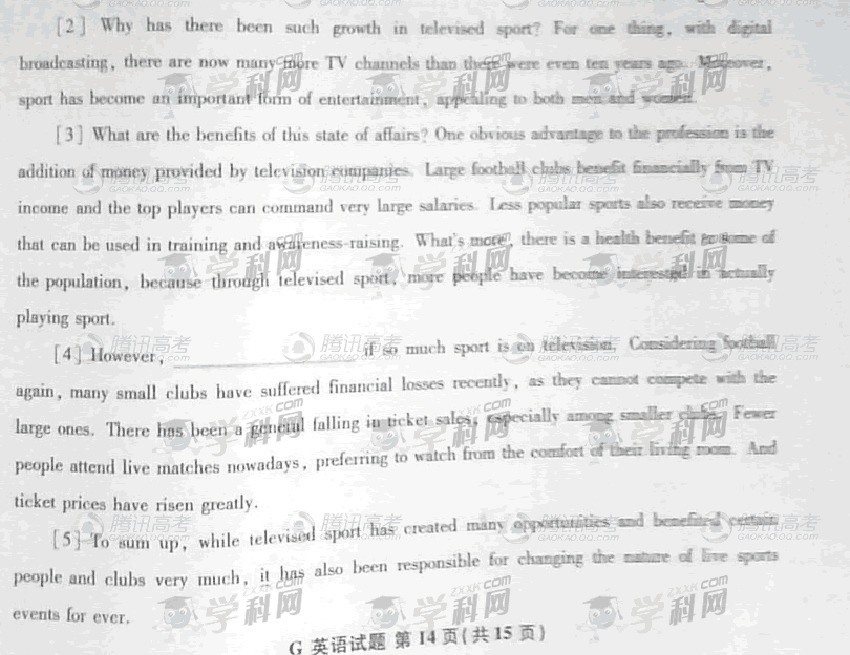 [2] Why has there been such growth in televised sport? For one thing, with digital
broadcasting, there are now many more TV channels than there were even ten years ago. Moreover,
sport has become an important form of entertainment, appealing to both men and women.
[3] What are the benefits of this state of affairs? One obvious advantage to the profession is the
addition of money provided by television companies. Large football clubs benefit financially from TV
income and the top players can command very large salaries. Less popular sports also receive money
that can be used in training and awareness-raising. What's more, there is a health benefit to some of
the population, because through televised sport, more people have become interested in actually
playing sport.
[4] However, ____________________ if so much sport is on television. Considering football
again, many small clubs have suffered financial losses recently, as they cannot compete with the
large ones. There has been a general falling in ticket sales, especially among smaller clubs. Fewer
people attend live matches nowadays, preferring to watch from the comfort of their living room. And
ticket prices have risen greatly.
[5] To sum up, while televised sport has created many opportunities and benefited certain
people and clubs very much, it has also been responsible for changing the nature of live sports
events for ever.
G 英语试题 第 14 页(共 15 页)